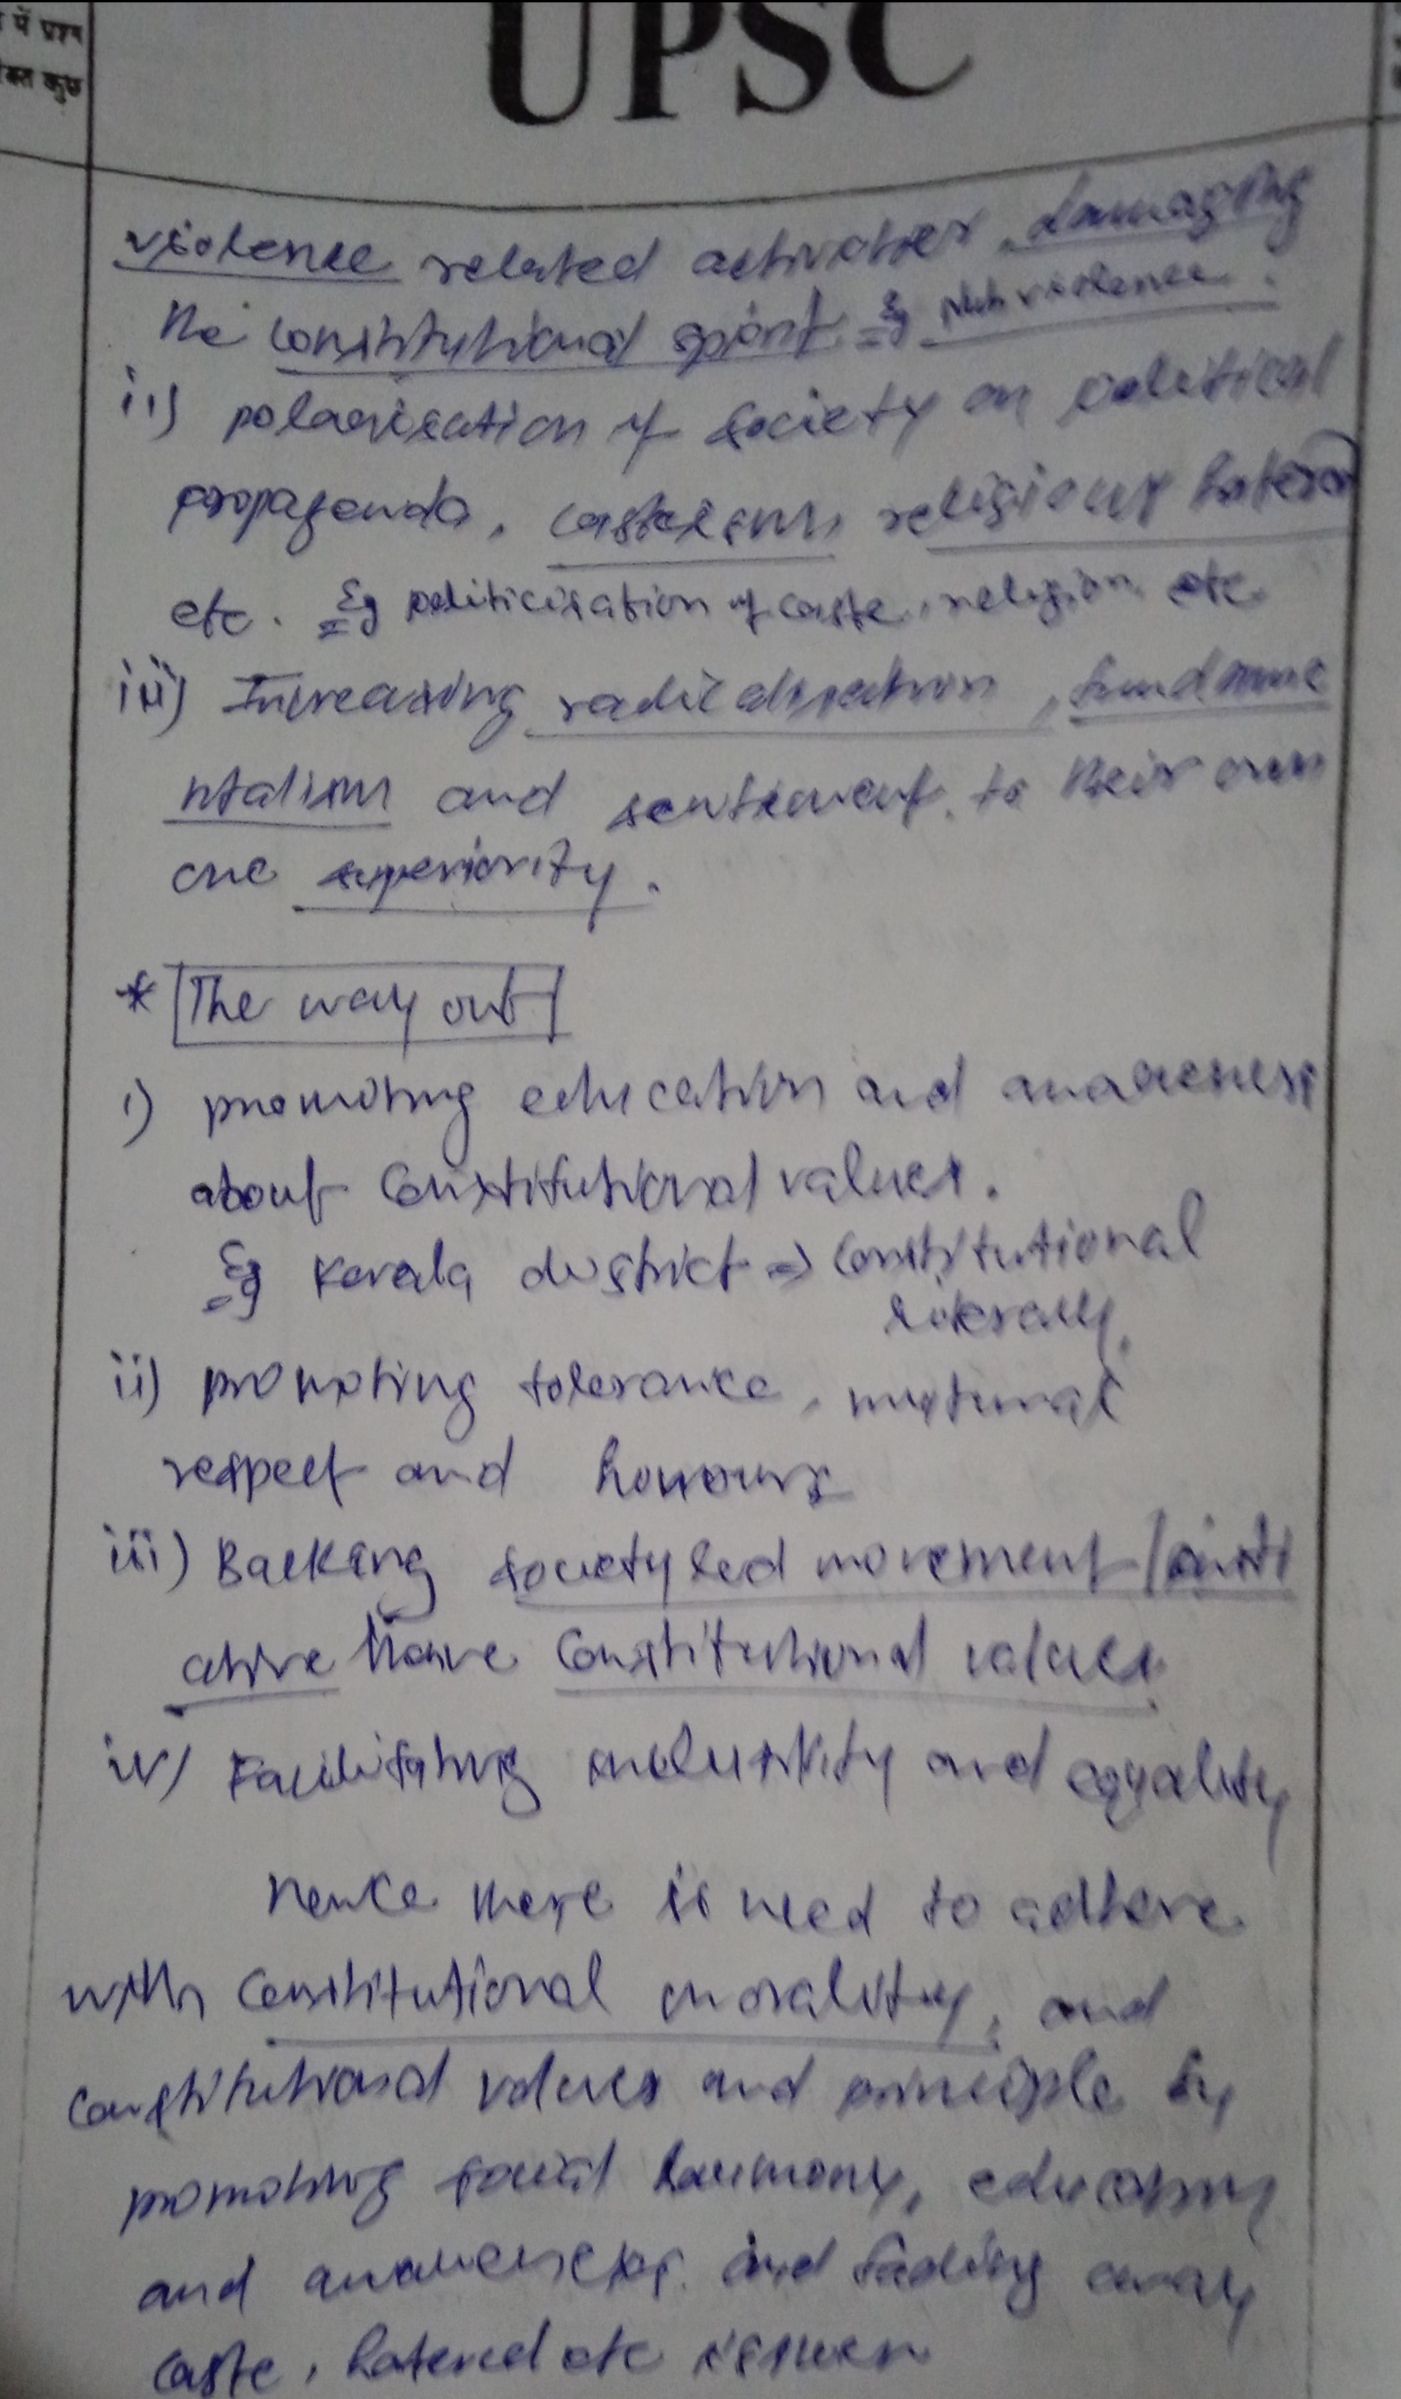 में प्रश्न
कुछ
UPSC
violence related activities, damaging
the constitutional spirit. Eg Nuh violence.
ii) polarisation of society on political
propaganda, casteism, religious hatered
etc. Eg politicisation of caste, religion etc
iii) Increasing radicalisation, fundame
ntalism and sentiment to their own
one superiority.
* The way out
i) promoting education and awareness
about Constitutional values.
Eg Kerala district => Constitutional
literacy.
ii) promoting tolerance, mutural
respect and honours
iii) Backing society led movement/initi
ative have Constitutional values.
iv) Facilitating inclusivity and equality
Hence there is need to adhere
with Constitutional morality, and
constitutional values and principle by
promoting social harmony, education
and awareness. and fading away
caste, hatered etc issues